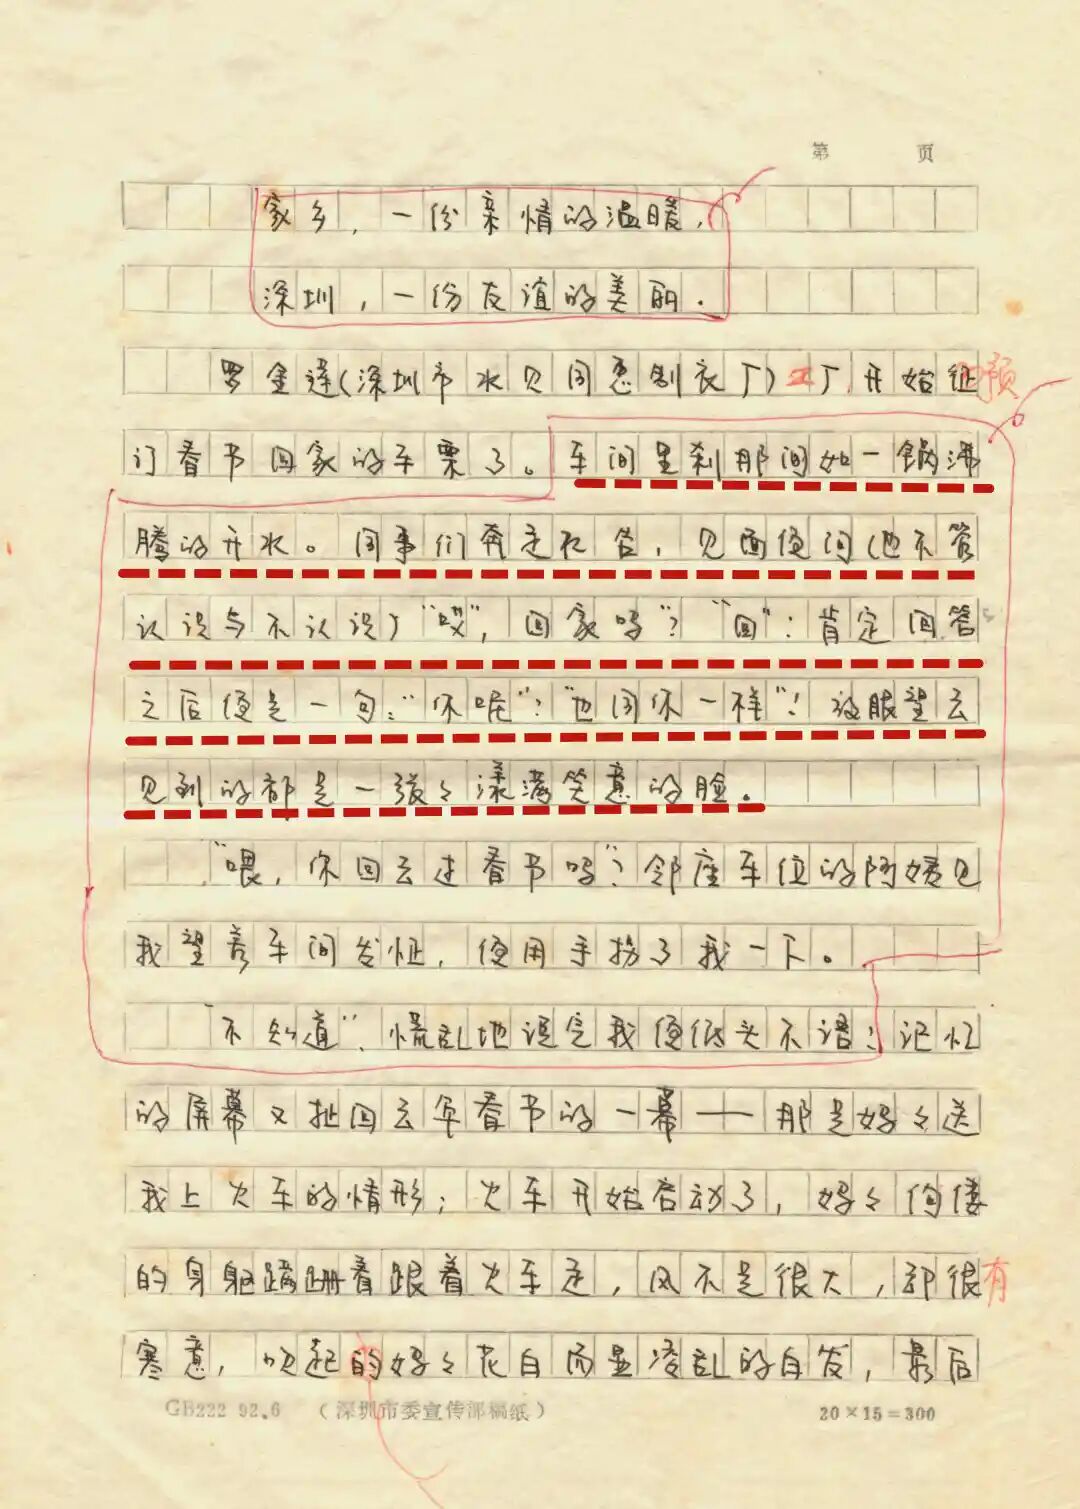 第　页
家乡，一份亲情的温暖，
深圳，一份友谊的美丽．
罗金莲(深圳市水贝同惠制衣厂)厂开始征预
订春节回家的车票了。车间里刹那间如一锅沸
腾的开水。同事们奔走相告，见面便问(也不管
认识与不认识)“哎”，回家吗”？“回”：肯定回答
之后便是一句：“你呢”？“也同你一样”！放眼望去
见到的都是一张々漾满笑意的脸．
“喂，你回去过春节吗”？邻座车位的阿嫂见
我望着车间发怔，便用手拐了我一下。
“不知道”，慌乱地说完我便低头不语！记忆
的屏幕又扯回去年春节的一幕——那是妈々送
我上火车的情形；火车开始启动了，妈々佝偻
的身躯蹒跚着跟着火车走，风不是很大，却很有
寒意，吹起的妈々花白而显凌乱的白发，最后
GB222 92.6 （深圳市委宣传部稿纸） 20×15=300